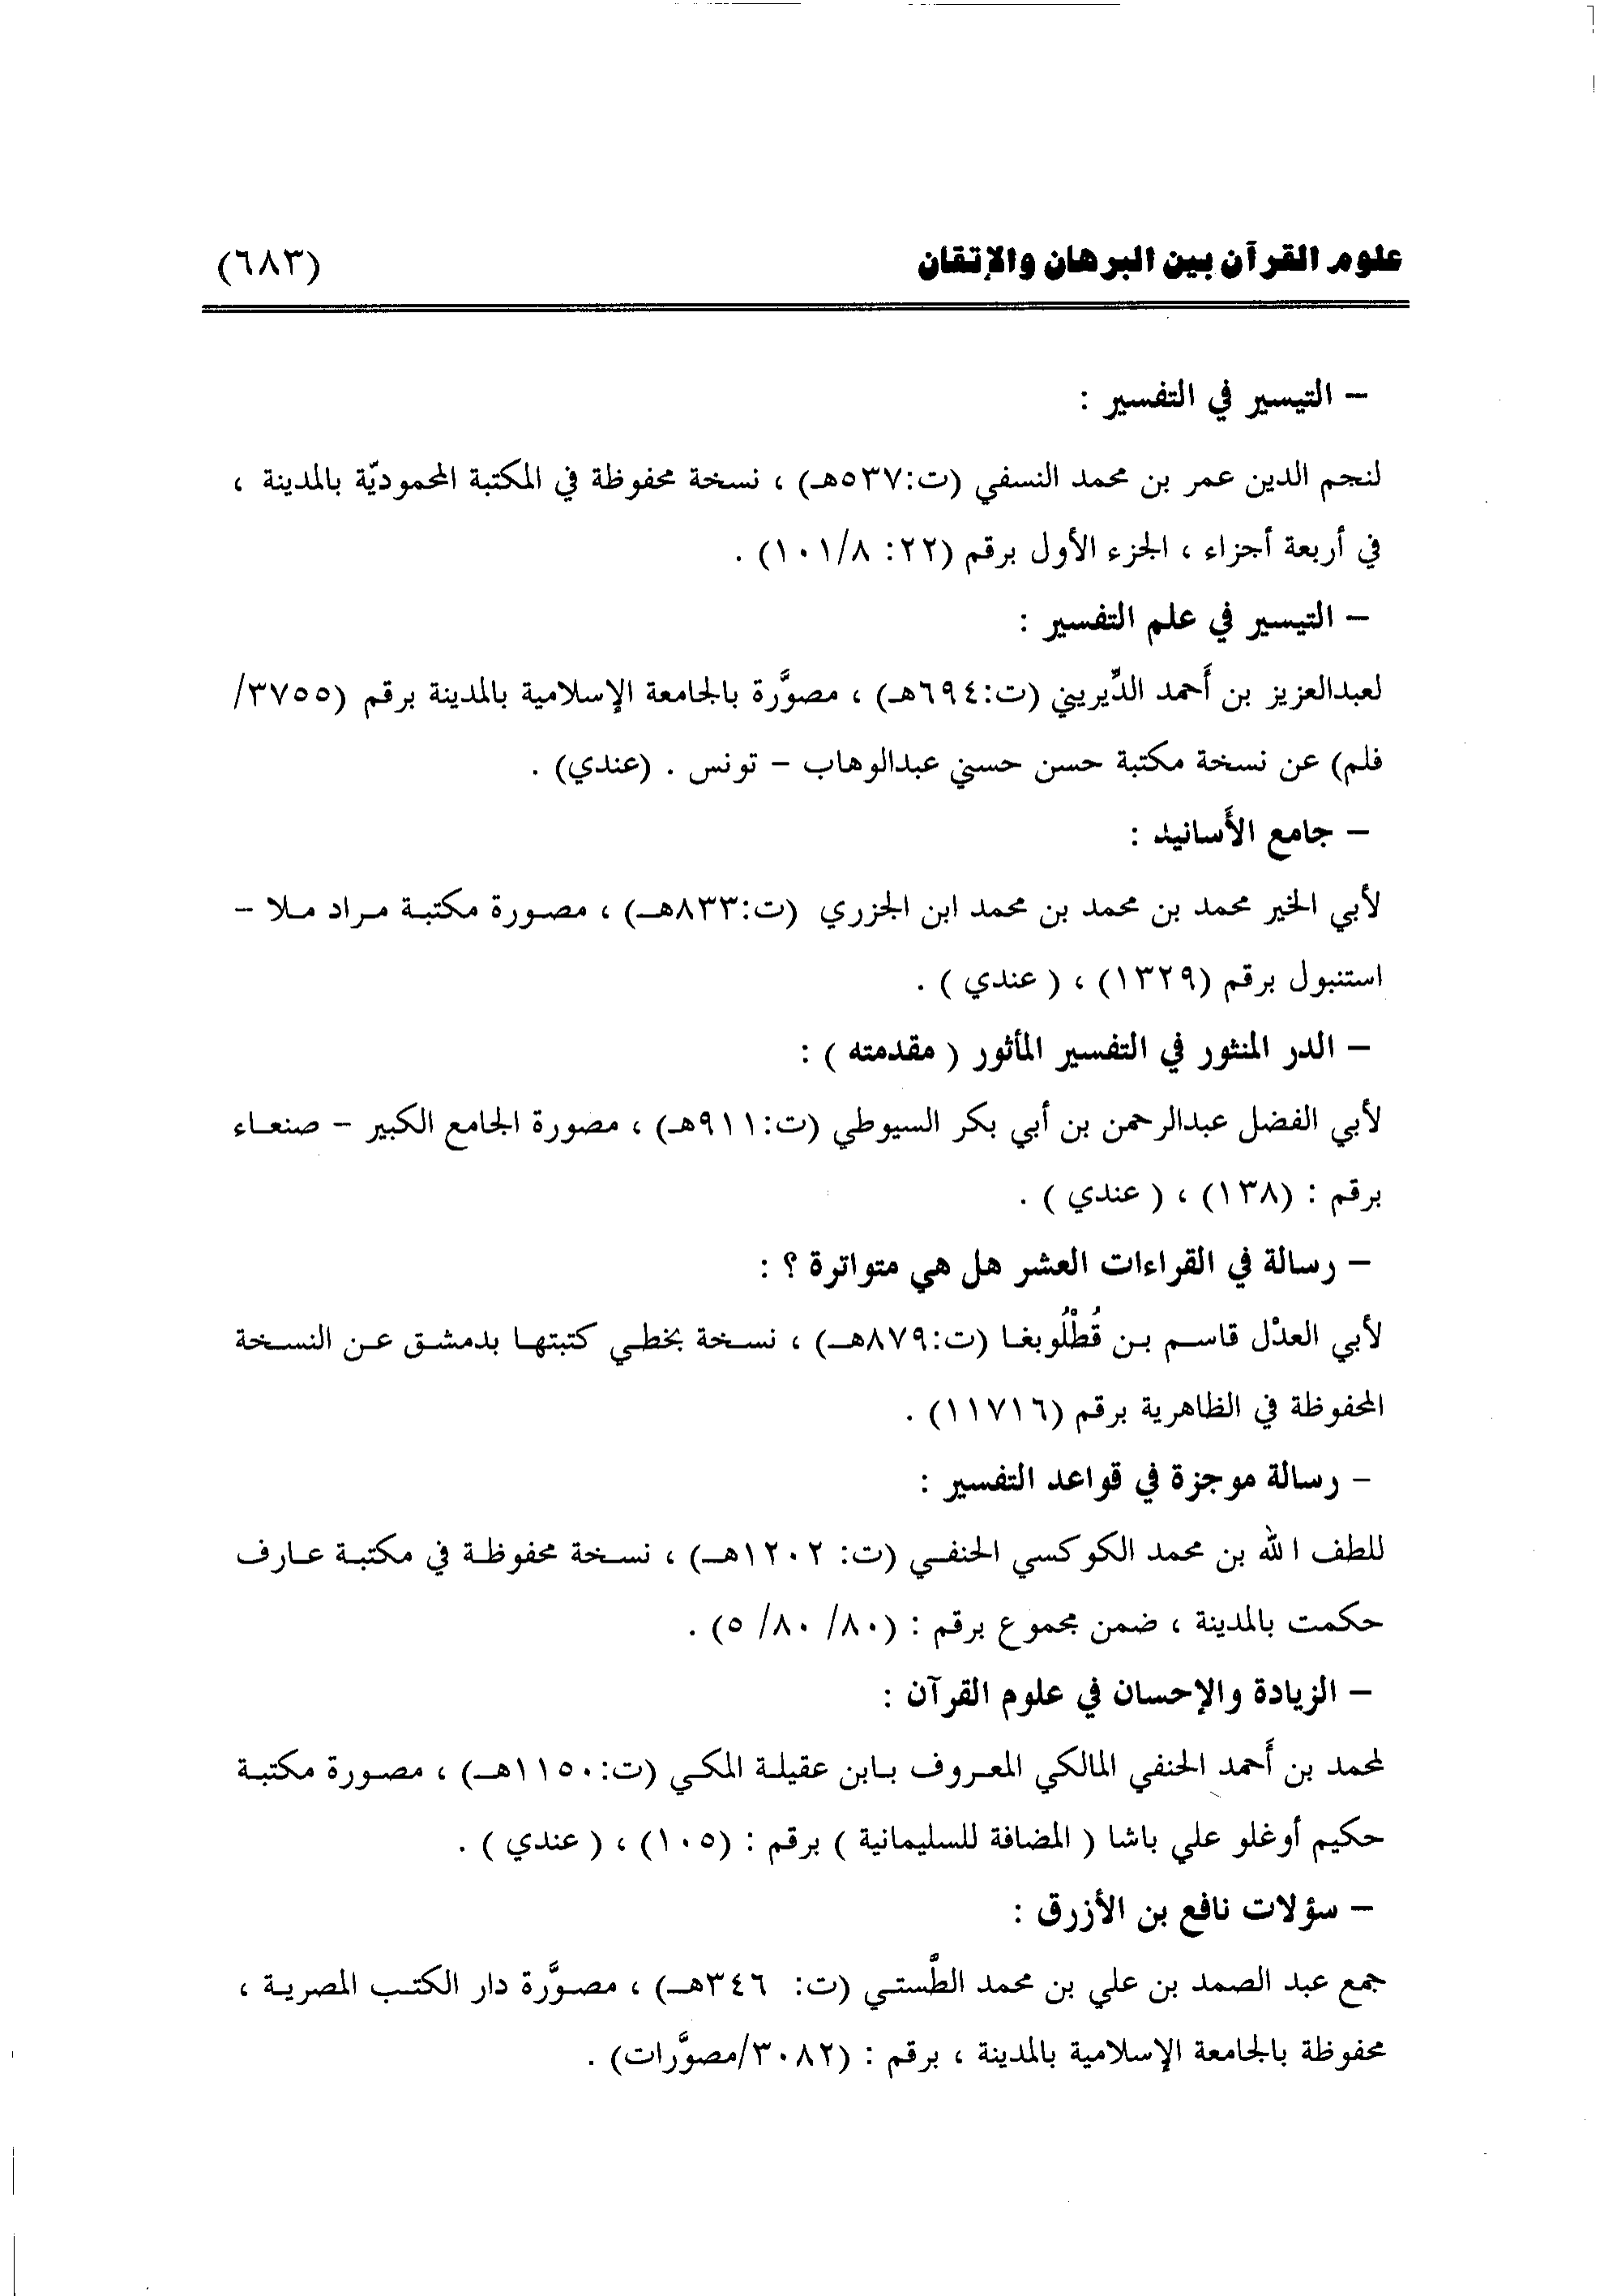 علوم القرآن بين البرهان والإتقان (٦٨٣)
– التيسير في التفسير :
لنجم الدين عمر بن محمد النسفي (ت:٥٣٧هـ) ، نسخة محفوظة في المكتبة المحموديّة بالمدينة ،
في أربعة أجزاء ، الجزء الأول برقم (٢٢: ١٠١/٨) .
– التيسير في علم التفسير :
لعبدالعزيز بن أَحمد الدِّيريني (ت:٦٩٤هـ) ، مصوَّرة بالجامعة الإسلامية بالمدينة برقم (٣٧٥٥/
فلم) عن نسخة مكتبة حسن حسني عبدالوهاب – تونس . (عندي) .
– جامع الأَسانيد :
لأبي الخير محمد بن محمد بن محمد ابن الجزري (ت:٨٣٣هـ) ، مصورة مكتبة مراد ملا –
استنبول برقم (١٣٢٩) ، ( عندي ) .
– الدر المنثور في التفسير المأثور ( مقدمته ) :
لأبي الفضل عبدالرحمن بن أبي بكر السيوطي (ت:٩١١هـ) ، مصورة الجامع الكبير – صنعاء
برقم : (١٣٨) ، ( عندي ) .
– رسالة في القراءات العشر هل هي متواترة ؟ :
لأبي العدْل قاسم بن قُطْلُوبغا (ت:٨٧٩هـ) ، نسخة بخطي كتبتها بدمشق عن النسخة
المحفوظة في الظاهرية برقم (١١٧١٦) .
– رسالة موجزة في قواعد التفسير :
للطف الله بن محمد الكوكسي الحنفي (ت: ١٢٠٢هـ) ، نسخة محفوظة في مكتبة عارف
حكمت بالمدينة ، ضمن مجموع برقم : (٨٠/ ٨٠/ ٥) .
– الزيادة والإحسان في علوم القرآن :
لمحمد بن أَحمد الحنفي المالكي المعروف بابن عقيلة المكي (ت:١١٥٠هـ) ، مصورة مكتبة
حكيم أوغلو علي باشا ( المضافة للسليمانية ) برقم : (١٠٥) ، ( عندي ) .
– سؤلات نافع بن الأزرق :
جمع عبد الصمد بن علي بن محمد الطَّستي (ت: ٣٤٦هـ) ، مصوَّرة دار الكتب المصرية ،
محفوظة بالجامعة الإسلامية بالمدينة ، برقم : (٣٠٨٢/مصوَّرات) .